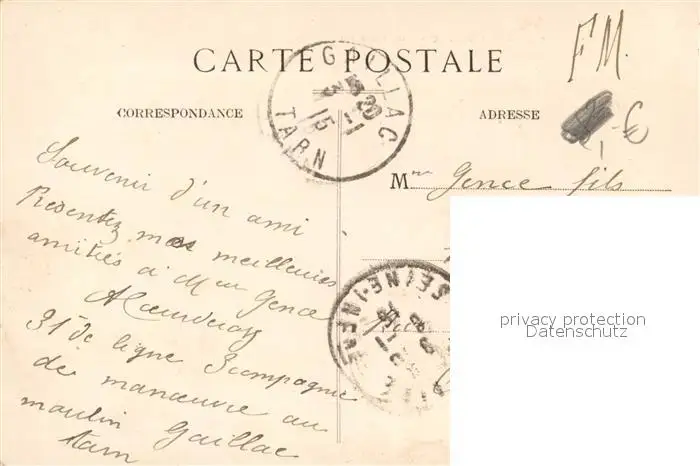 FM.
CARTE POSTALE
GAILLAC
TARN
CORRESPONDANCE
ADRESSE
€
Souvenir d'un ami
Presentez mes meilleures
amitiés à Mme Gence
31e de ligne 3 compagnie
de manœuvre au
moulin Gaillac
tarn
M Gence fils
SEINE-INFRE
privacy protection
Datenschutz